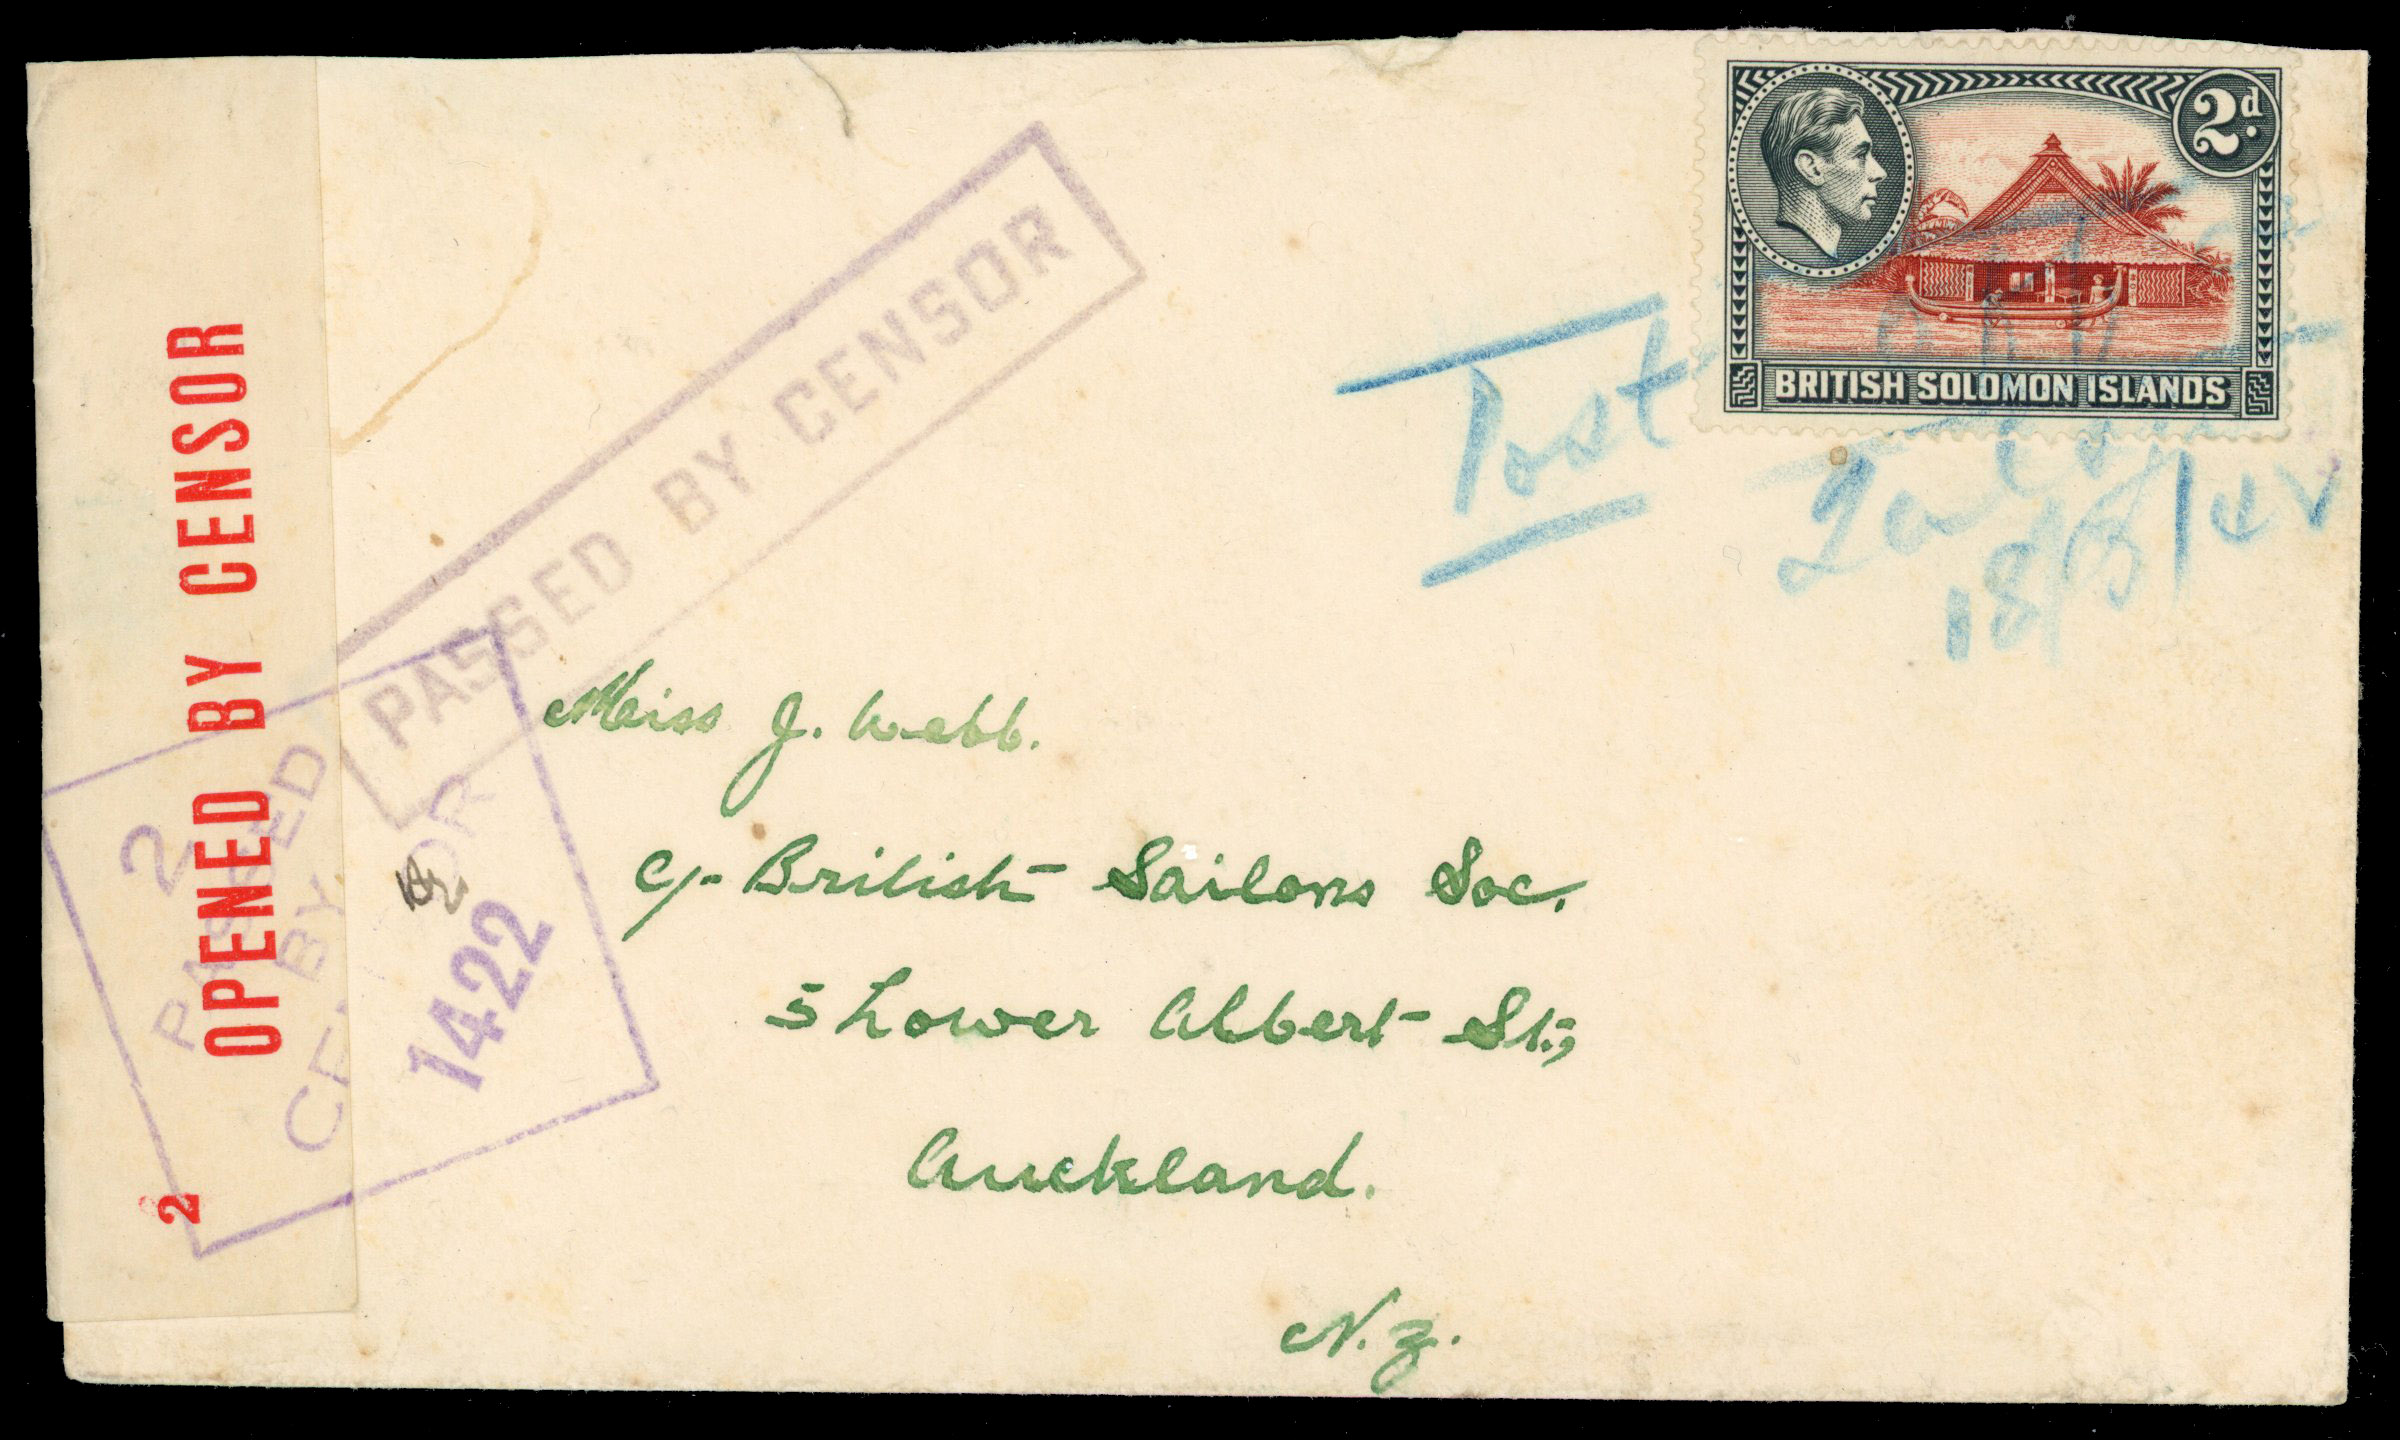 2d.
BRITISH SOLOMON ISLANDS
Post
18/3/42
PASSED BY CENSOR
OPENED BY CENSOR
2
2
PASSED
BY
CENSOR
1422
Miss J. Webb.
C/- British Sailors Soc.
5 Lower Albert St.,
Auckland.
N.Z.